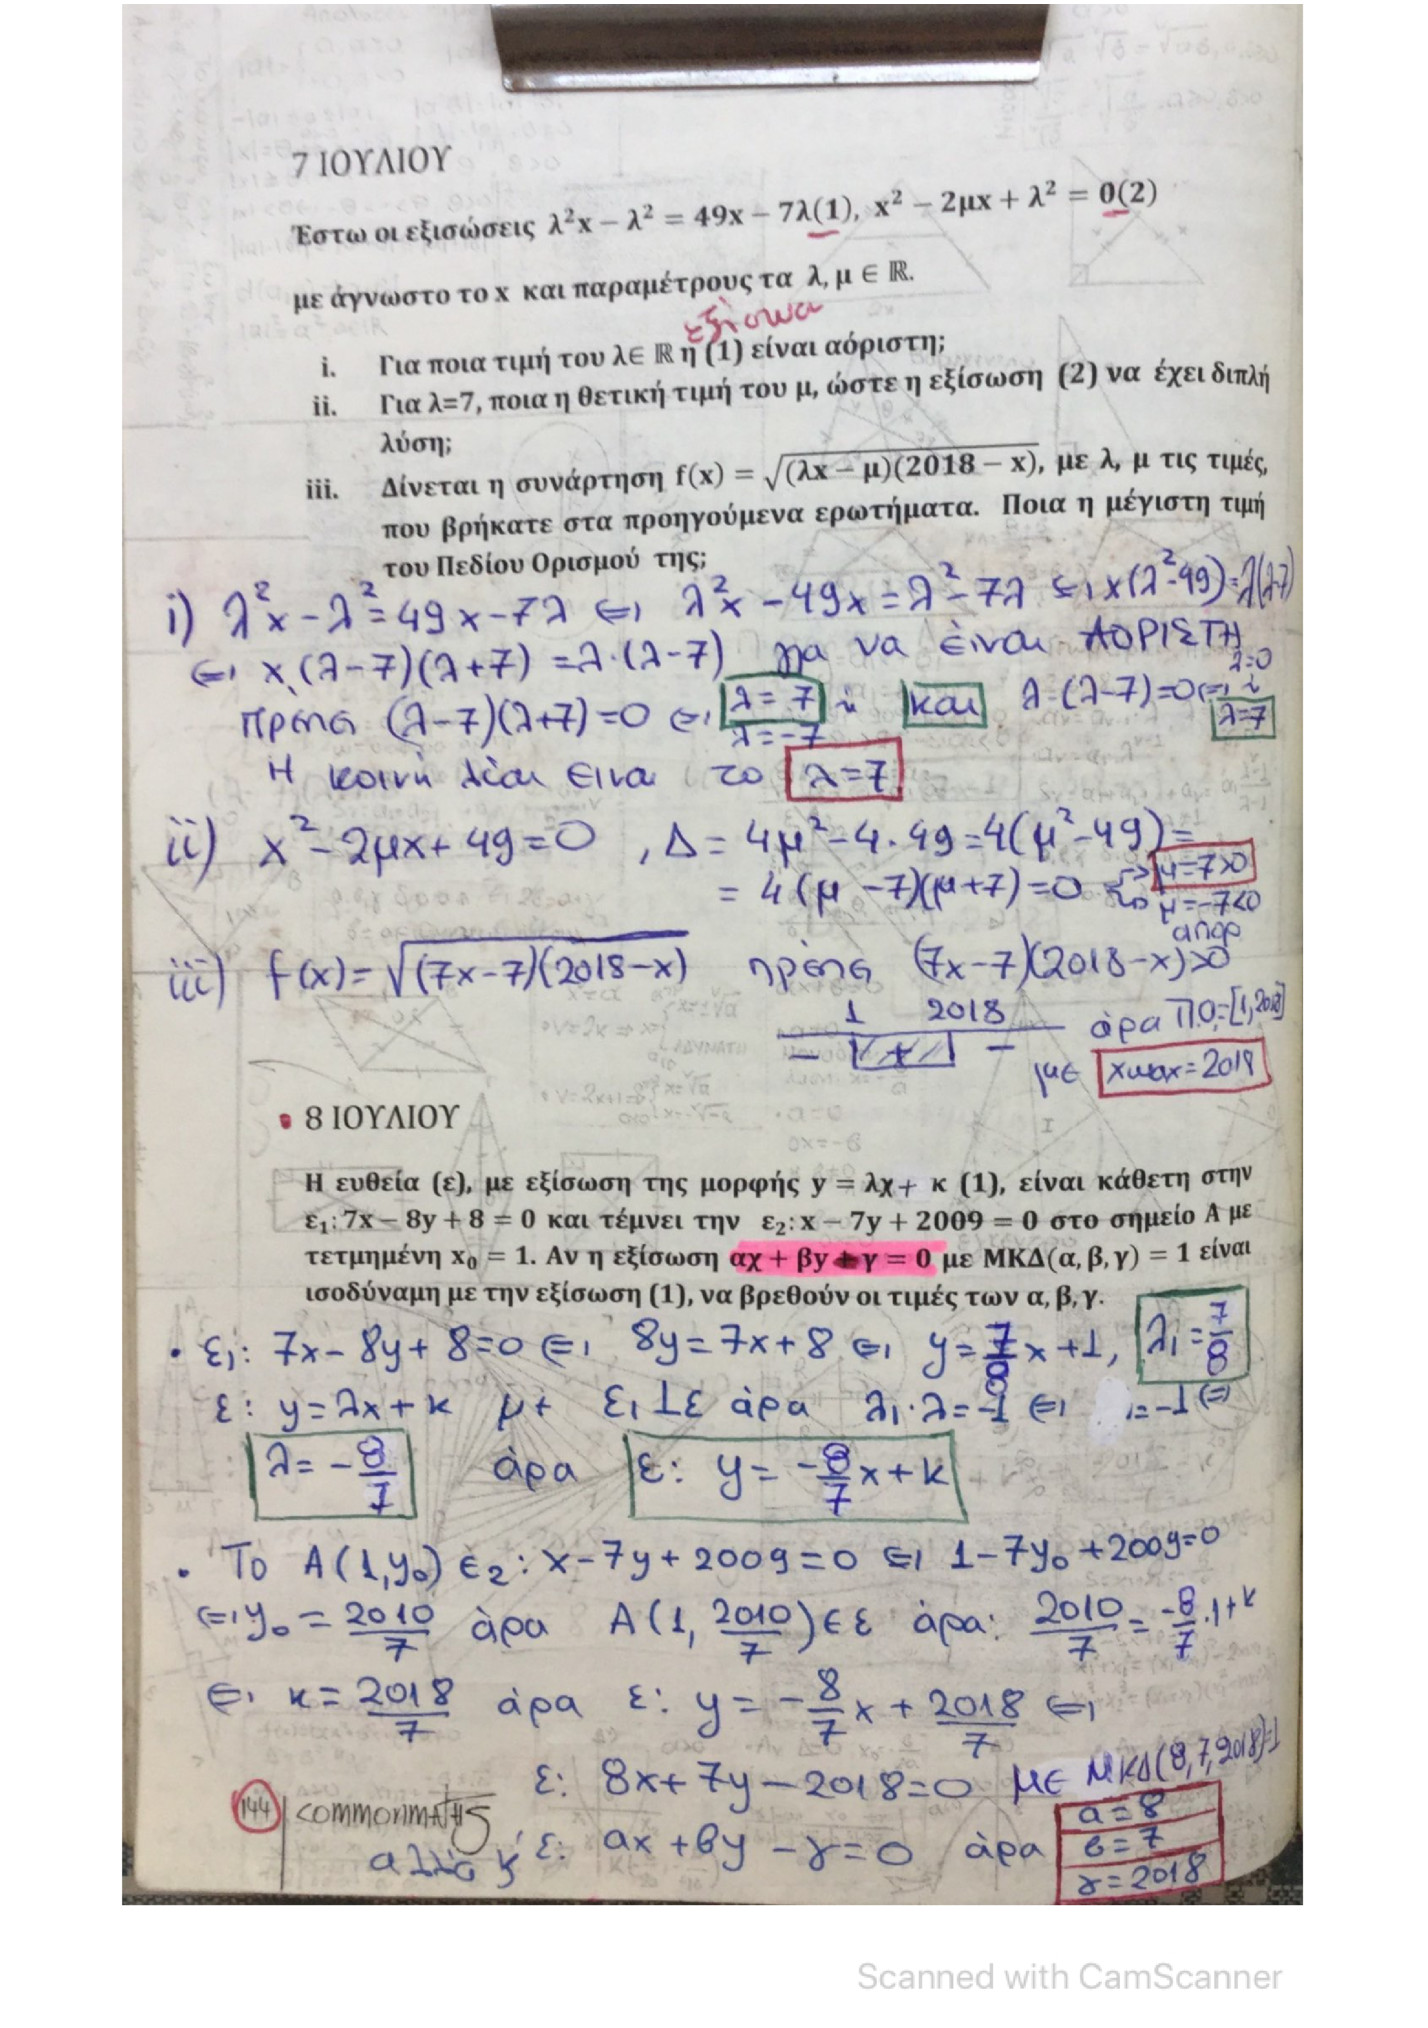 7 ΙΟΥΛΙΟΥ
Έστω οι εξισώσεις λ²x − λ² = 49x − 7λ(1), x² − 2μx + λ² = 0(2)
με άγνωστο το x και παραμέτρους τα λ, μ ∈ ℝ.
εξίσωση
i. Για ποια τιμή του λ∈ ℝ η (1) είναι αόριστη;
ii. Για λ=7, ποια η θετική τιμή του μ, ώστε η εξίσωση (2) να έχει διπλή
λύση;
iii. Δίνεται η συνάρτηση f(x) = √(λx − μ)(2018 − x), με λ, μ τις τιμές,
που βρήκατε στα προηγούμενα ερωτήματα. Ποια η μέγιστη τιμή
του Πεδίου Ορισμού της;
i) λ²x − λ² = 49x − 7λ ⇔ λ²x − 49x = λ² − 7λ ⇔ x(λ²−49) = λ(λ−7)
⇔ x(λ−7)(λ+7) = λ·(λ−7) για να είναι ΑΟΡΙΣΤΗ
πρεπει (λ−7)(λ+7) = 0 ⇔ λ = 7 ή λ = −7 και λ·(λ−7) = 0 ⇔ λ=0 ή λ=7
Η κοινή λύση ειναι το λ = 7
ii) x² − 2μx + 49 = 0 , Δ = 4μ² − 4·49 = 4(μ² − 49) =
= 4(μ − 7)(μ + 7) = 0 μ = 7 > 0
μ = −7 < 0
απορ
iii) f(x) = √(7x−7)(2018−x) πρέπει (7x−7)(2018−x) ≥ 0
1 2018
− + − άρα Π.Ο. = [1, 2018]
με xmax = 2018
8 ΙΟΥΛΙΟΥ
Η ευθεία (ε), με εξίσωση της μορφής y = λχ + κ (1), είναι κάθετη στην
ε₁: 7x − 8y + 8 = 0 και τέμνει την ε₂: x − 7y + 2009 = 0 στο σημείο Α με
τετμημένη x₀ = 1. Αν η εξίσωση αχ + βy + γ = 0 με ΜΚΔ(α, β, γ) = 1 είναι
ισοδύναμη με την εξίσωση (1), να βρεθούν οι τιμές των α, β, γ.
• ε₁: 7x − 8y + 8 = 0 ⇔ 8y = 7x + 8 ⇔ y = 7/8 x + 1, λ₁ = 7/8
ε: y = λx + κ με ε₁ ⊥ ε άρα λ₁·λ = −1 ⇔ = −1 ⇔
λ = −8/7 άρα ε: y = −8/7 x + κ
• Το Α(1, y₀) ∈ ε₂: x − 7y + 2009 = 0 ⇔ 1 − 7y₀ + 2009 = 0
⇔ y₀ = 2010/7 άρα Α(1, 2010/7) ∈ ε άρα: 2010/7 = −8/7 · 1 + κ
⇔ κ = 2018/7 άρα ε: y = −8/7 x + 2018/7 ⇔
ε: 8x + 7y − 2018 = 0 με ΜΚΔ(8, 7, 2018) = 1
144 COMMONMATHS
αλλά κ' ε: αx + βy − γ = 0 άρα
α = 8
β = 7
γ = 2018
Scanned with CamScanner